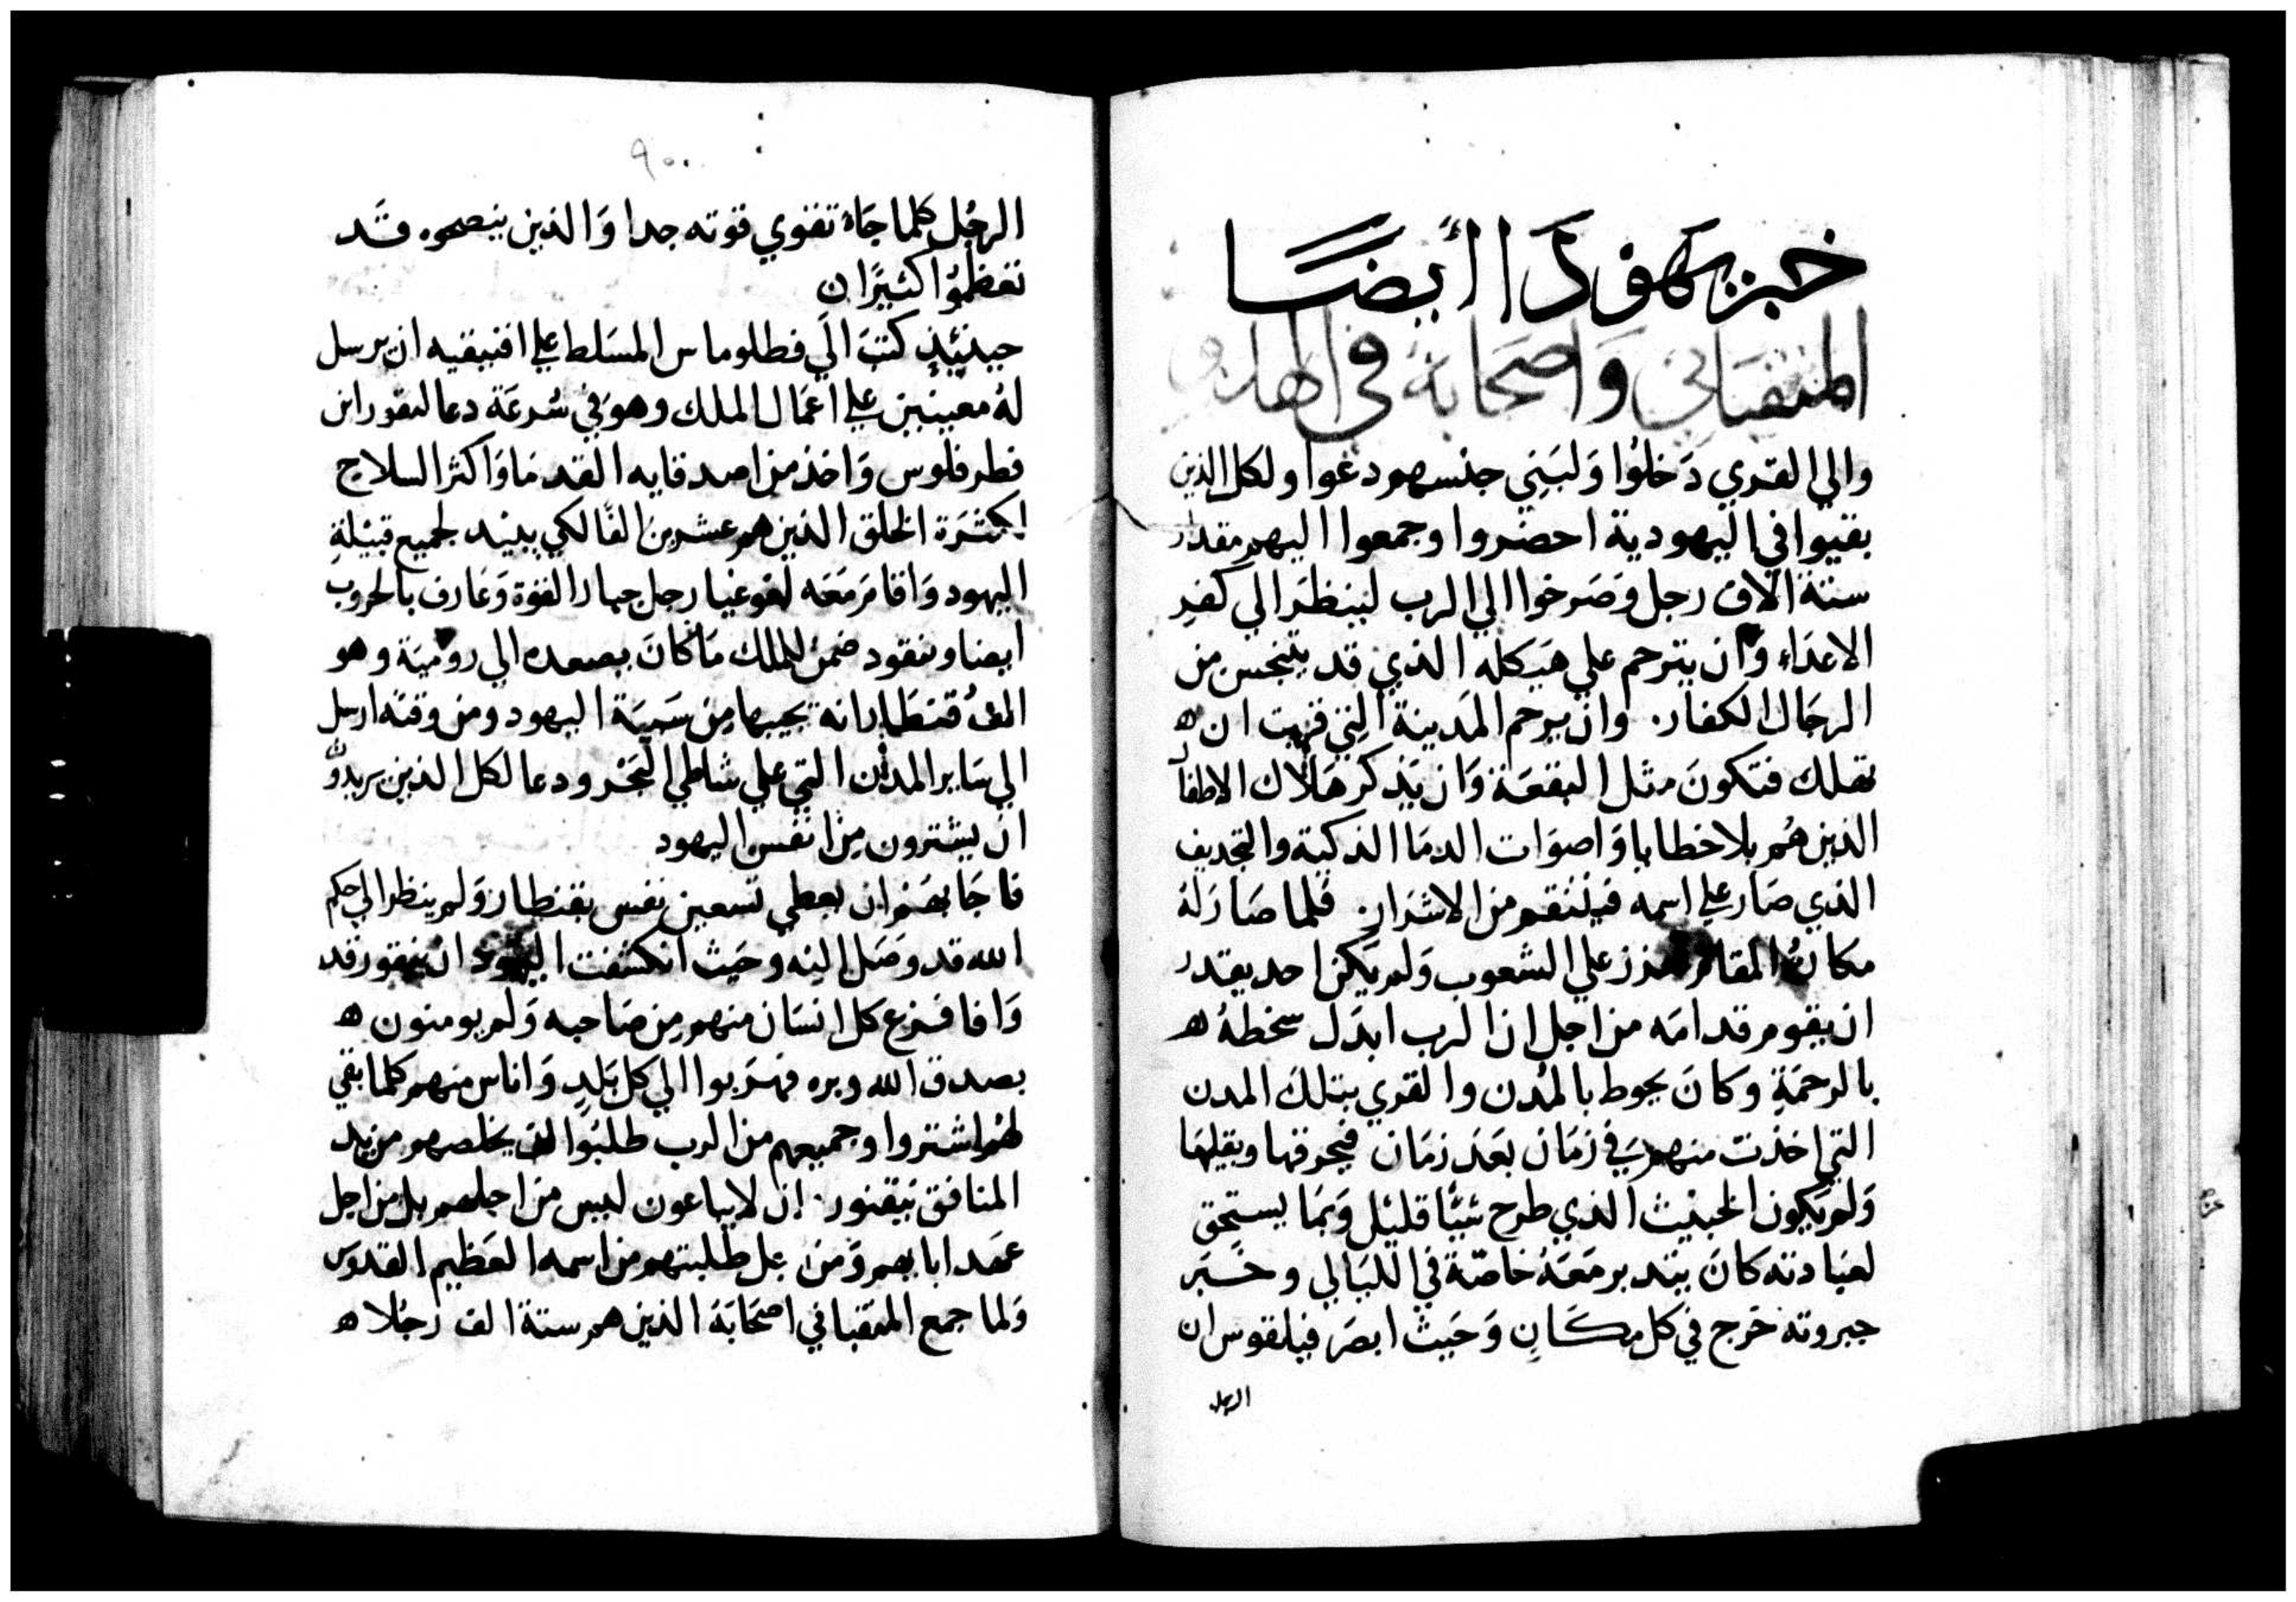 خبر يهودَا أيضًا
المنقباني وَاصحَابهُ في الهلاك
والي القري دَخلوُا وَلبَنِي جنسهم دعوا ولكل الذين
بقيوا في اليهودية احضروا وجمعوا اليهم مقدار
ستة الاف رجل وَصَرخوا الي الرب لينظرَ الي كفرِ
الاعدَاءِ وَان يترحم علي هَيَكله الذي قد يتنجس من
الرجَال الكفار. وان يرحم المَدينة التي قربت ان ه
تهلك فتكونَ مثل البقعَة وَان يَذكر هَلاك الاطفال
الذين هُم بلا خطايا وَاصوَات الدمَا الذكية والتجديف
الذي صَار علي اسمه فينتقم من الاشرَار. فلما صَارَ له
مكانُ المقام علي الشعوب وَلم يَكن احد يقدر
ان يقوم قدامَه من اجل ان الرب ابدَل سخطهُ ه
بالرحمَةِ وكانَ يحوط بالمُدن والقري بتلكَ المدن
التي اخذت منهم في زمَان بعَد زمَان فيحرقها ويقلبها
وَلم يَكون الخبيث الذي طرح شيًا قليل وَبمَا يستحق
لعبَادته كانَ يتدبر مَعَهُ خاصّة في الليَالي وخبَر
جبروته خرج في كل مكَانٍ وَحَيث ابصَر فيلقوس ان
الرجل
٩٠٠
الرجُل كلما جَاءَ تقوي قوته جدا وَالذين ينصحوه قد
تعظموُا كثيرًا ن
حينئِذٍ كتبَ الَي فطلوماس المسَلط علي افنيقيه ان يرسل
لهُ معينين علي اعمَال الملك وهوَ في سُرعَة دعا لنقور ابن
فطرفلوس وَاخذ من اصدقايه القدمَا وَاكثر السلاح
لكثرَة الخلق الذين هم عشرين الفًا لكي يبيد لجميع قبيلةِ
اليهود وَاقامَ مَعَه لغوغيا رجل جبار القوة وَعَارف بالحروب
ايضا ونقود ضمنَ للملك مَا كانَ يصعده الي روميَة وهو
الفُ قنطَار انه يجيبها مِن سَبيَة اليهود ومن وقته ارسل
الي سَاير المدُن التي علي شاطي البَحر ودعا لكل الذين يريدوُا
ان يشترون مِن انفس اليهود
فاجَابهَم ان يعطي تسعين نفس بقنطار وَلم ينظر الي حكم
الله قد وصَل اليه وحَيث انكشفت اليهود ان نيقور قد
وَافا فزع كل انسَان منهم مِن صَاحبه وَلم يومنون ه
بصدق الله وبره فهرَبوا الي كل بَلدٍ وَاناس منهم كلما بقي
لهُم اشتروا وجميعهم من الرب طلبُوا ان يخلصهم من يد
المنافق نيقنور. ان لا يباعون ليس من اجلهم بل من اجل
عهَد ابايهم وَمن اجل طلبتهم من اسمه العَظيم القدوس
وَلما جمع المنقباني اصحَابَهَ الذين هم ستة الف رَجُلا ه